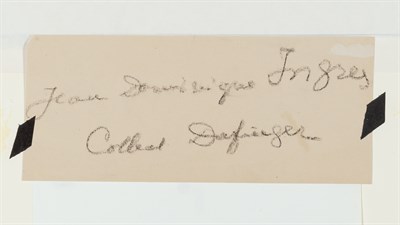 Jean Dominique Ingres
Collect Dafinger